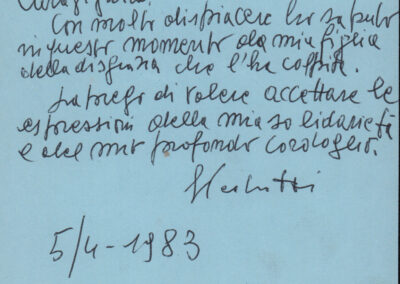 Con molto dispiacere ho saputo
in questo momento da mia figlia
della disgrazia che l'ha colpita.
La prego di volere accettare le
espressioni della mia solidarietà
e del mio profondo cordoglio.
5/4-1983